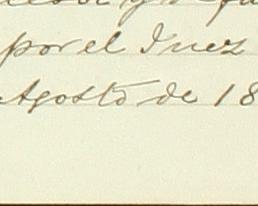 por el Juez
Agosto de 18